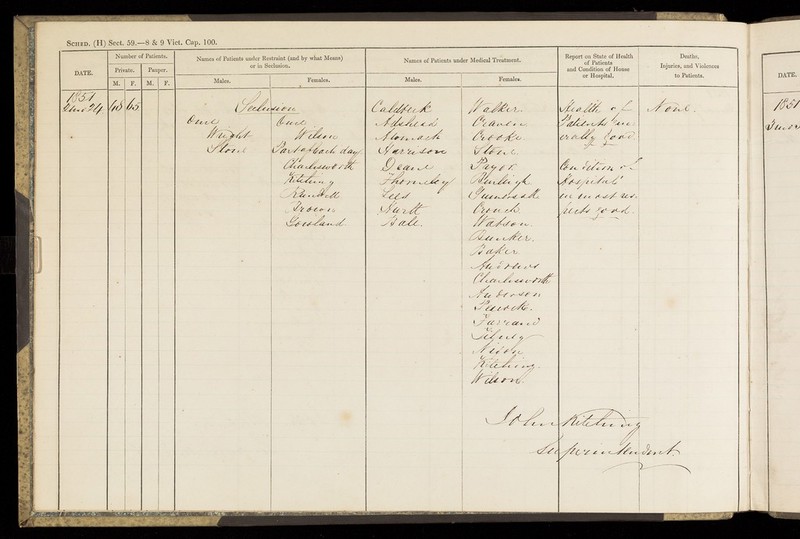 SCHED. (H) Sect. 59.—8 & 9 Vict. Cap. 100.
DATE.
Number of Patients.
Private. Pauper.
M. F. M. F.
Names of Patients under Restraint (and by what Means)
or in Seclusion.
Males. Females.
Names of Patients under Medical Treatment.
Males. Females.
Report on State of Health
of Patients
and Condition of House
or Hospital.
Deaths,
Injuries, and Violences
to Patients.
1851
24 65
Seclusion
Once Once
Wright Wilson
Stone Part of each day
Charlesworth
Kitching
Brown
Gowland
Caldbeck
Adshead
Harrison
Deane
Thornley
Lees
Hurtt
Bale.
Walker
Crooke
Stone
Crouch
Watson
Bunker
Baker
Andrews
Charlesworth
Anderson
Peacock
Farrand
Nixon
Kitching
Wilson
Health of
Patients gen
erally good
Condition of
Hospital
in most res-
pects good.
None.
John Kitching
Superintendent
DATE.
1851